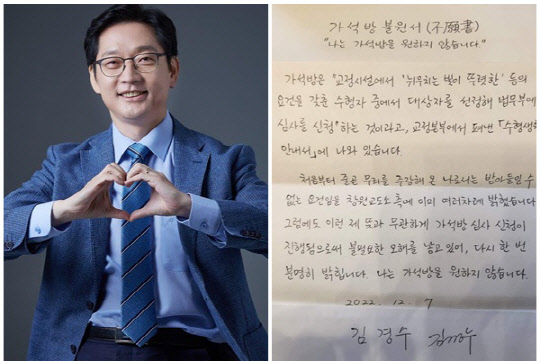 가석방 불원서 (不願書)
"나는 가석방을 원하지 않습니다."
가석방은 "교정시설에서 '뉘우치는 빛이 뚜렷한' 등의
요건을 갖춘 수형자 중에서 대상자를 선정해 법무부에
심사를 신청"하는 것이라고, 교정본부에서 펴낸 「수형생활
안내서」에 나와 있습니다.
처음부터 줄곧 무죄를 주장해 온 나로서는 받아들일 수
없는 요건임을 창원교도소 측에 이미 여러차례 밝혔습니다.
그럼에도 이런 제 뜻과 무관하게 가석방 심사 신청이
진행됨으로써 불필요한 오해를 낳고 있어, 다시 한 번
분명히 밝힙니다. 나는 가석방을 원하지 않습니다.
2022. 12. 7
김 경 수